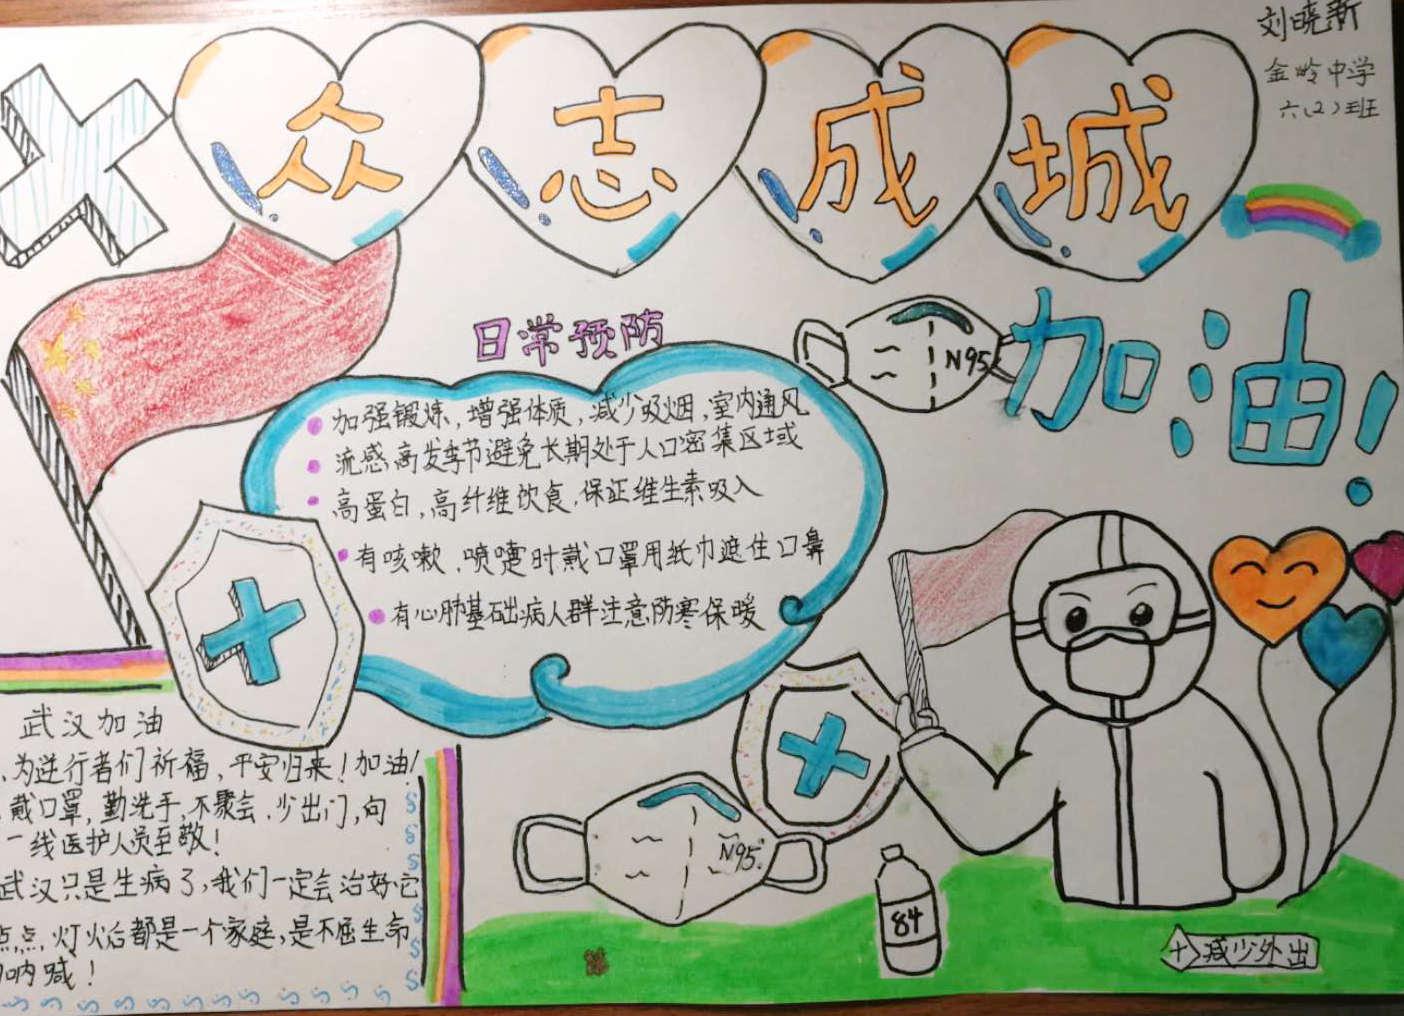 刘晓新
金岭中学
六(2)班
众志成城
加油!
N95
日常预防
加强锻炼,增强体质,减少吸烟,室内通风
流感高发季节避免长期处于人口密集区域
高蛋白,高纤维饮食,保证维生素吸入
有咳嗽,喷嚏时戴口罩用纸巾遮住口鼻
有心肺基础病人群注意防寒保暖
武汉加油
、为逆行者们祈福,平安归来!加油!
、戴口罩,勤洗手,不聚会,少出门,向
一线医护人员至敬!
武汉只是生病了,我们一定会治好它
点点,灯火后都是一个家庭,是不屈生命
呐喊!
N95
84
减少外出